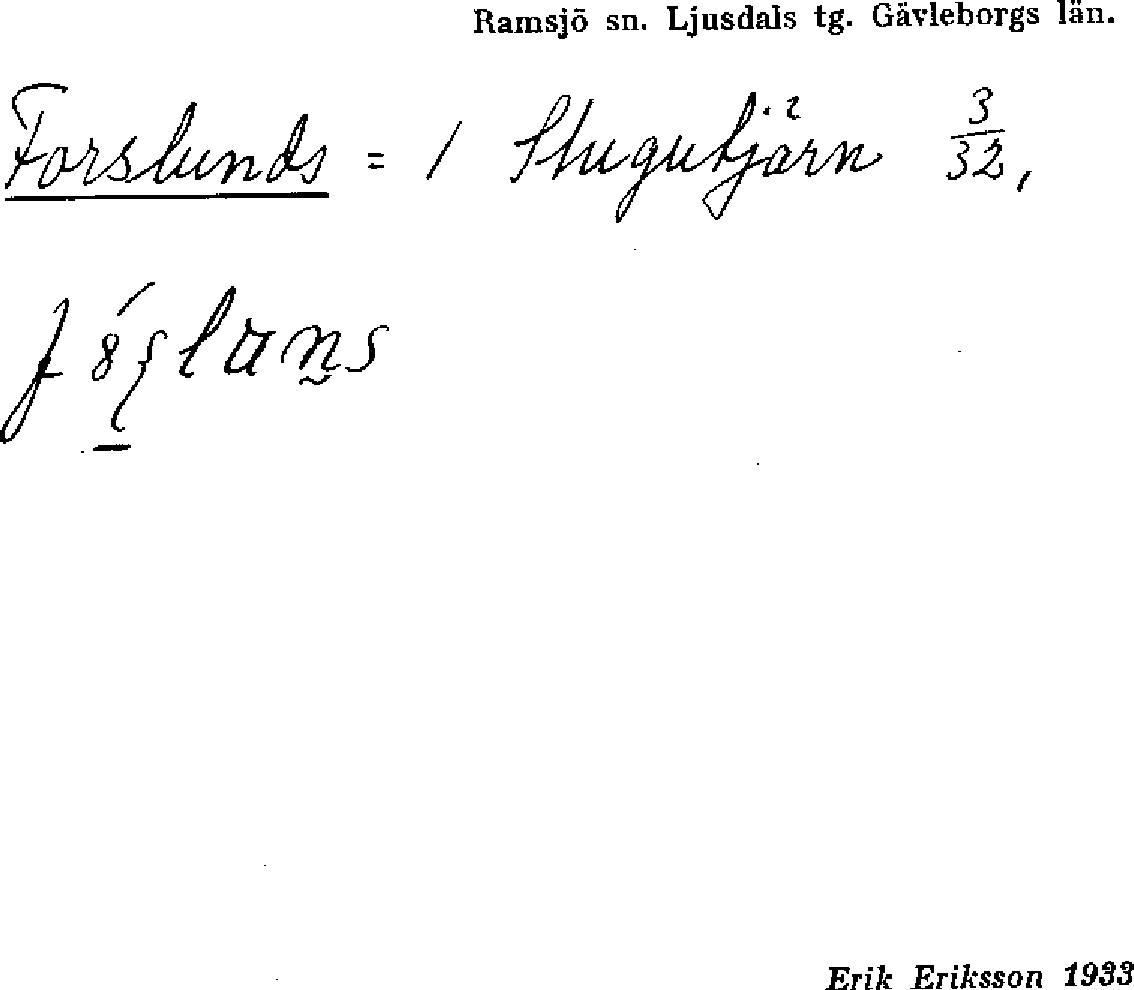 Ramsjö sn. Ljusdals tg. Gävleborgs län.
Forslunds = 1 Stugutjärn 3/32,
Erik Eriksson 1933